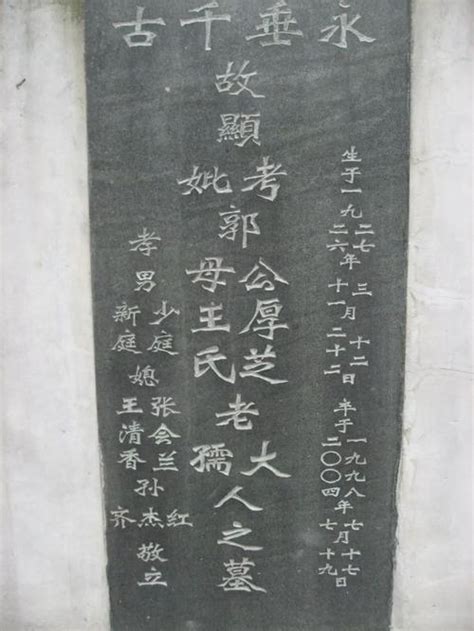 永垂千古
生于一九二七二六年三十一月十二二十二日卒于一九九八二〇〇四年七七月十七十九日
故顯考妣郭公厚芝母王氏老大孺人之墓
孝男少庭新庭媳张会兰王清香孙红杰齐敬立